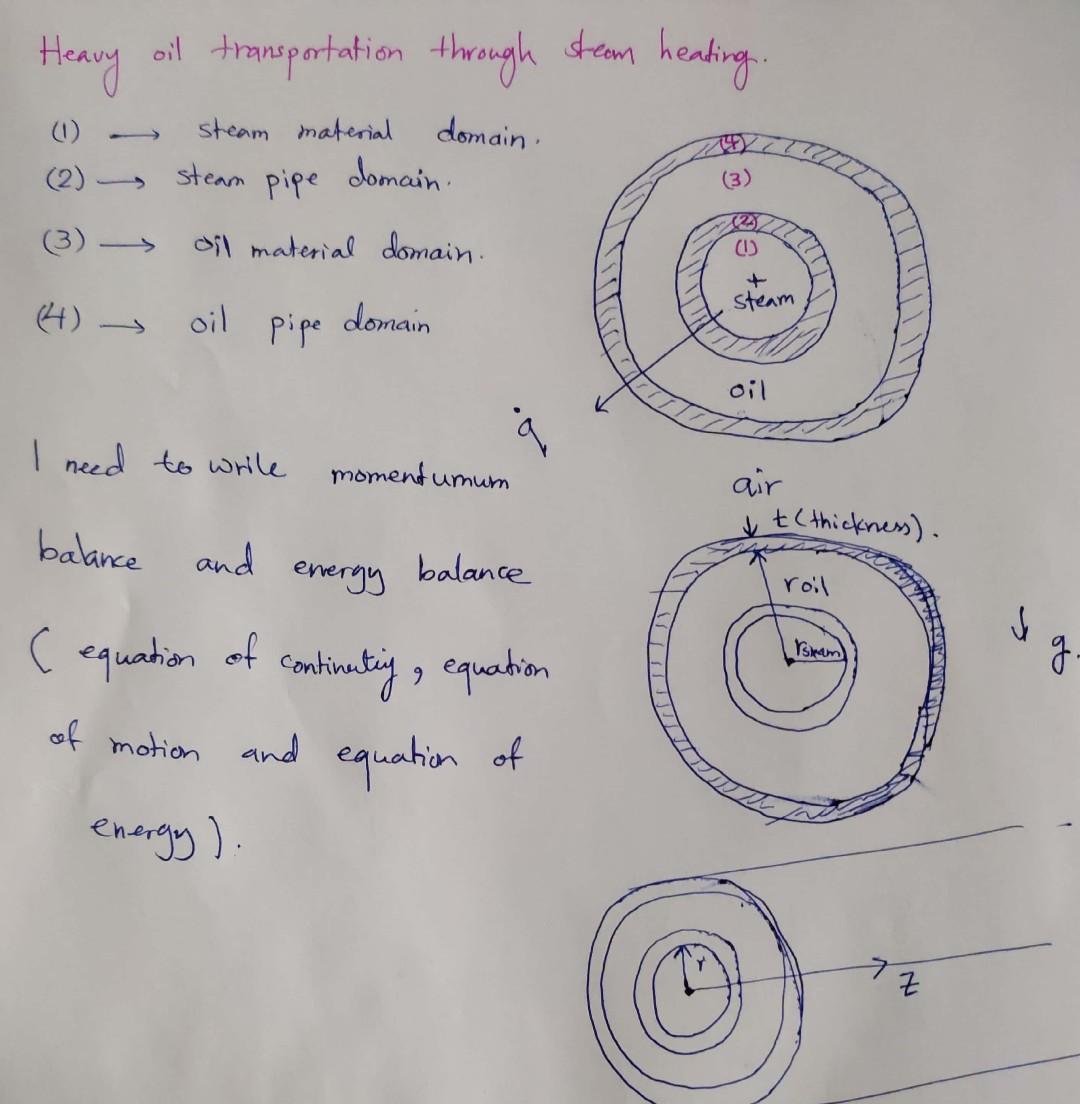 Heavy oil transportation through steam heating.
(1) → steam material domain.
(2) → steam pipe domain.
(3) → oil material domain.
(4) → oil pipe domain
(4)
(3)
(2)
(1)
+
steam
oil
q̇
air
I need to write momentumum
balance and energy balance
( equation of continutiy, equation
of motion and equation of
energy).
t (thickness).
roil
rsteam
↓ g.
r
z